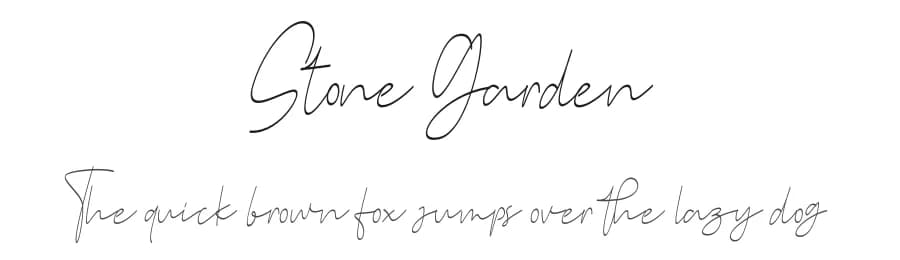 Stone Garden
The quick brown fox jumps over the lazy dog